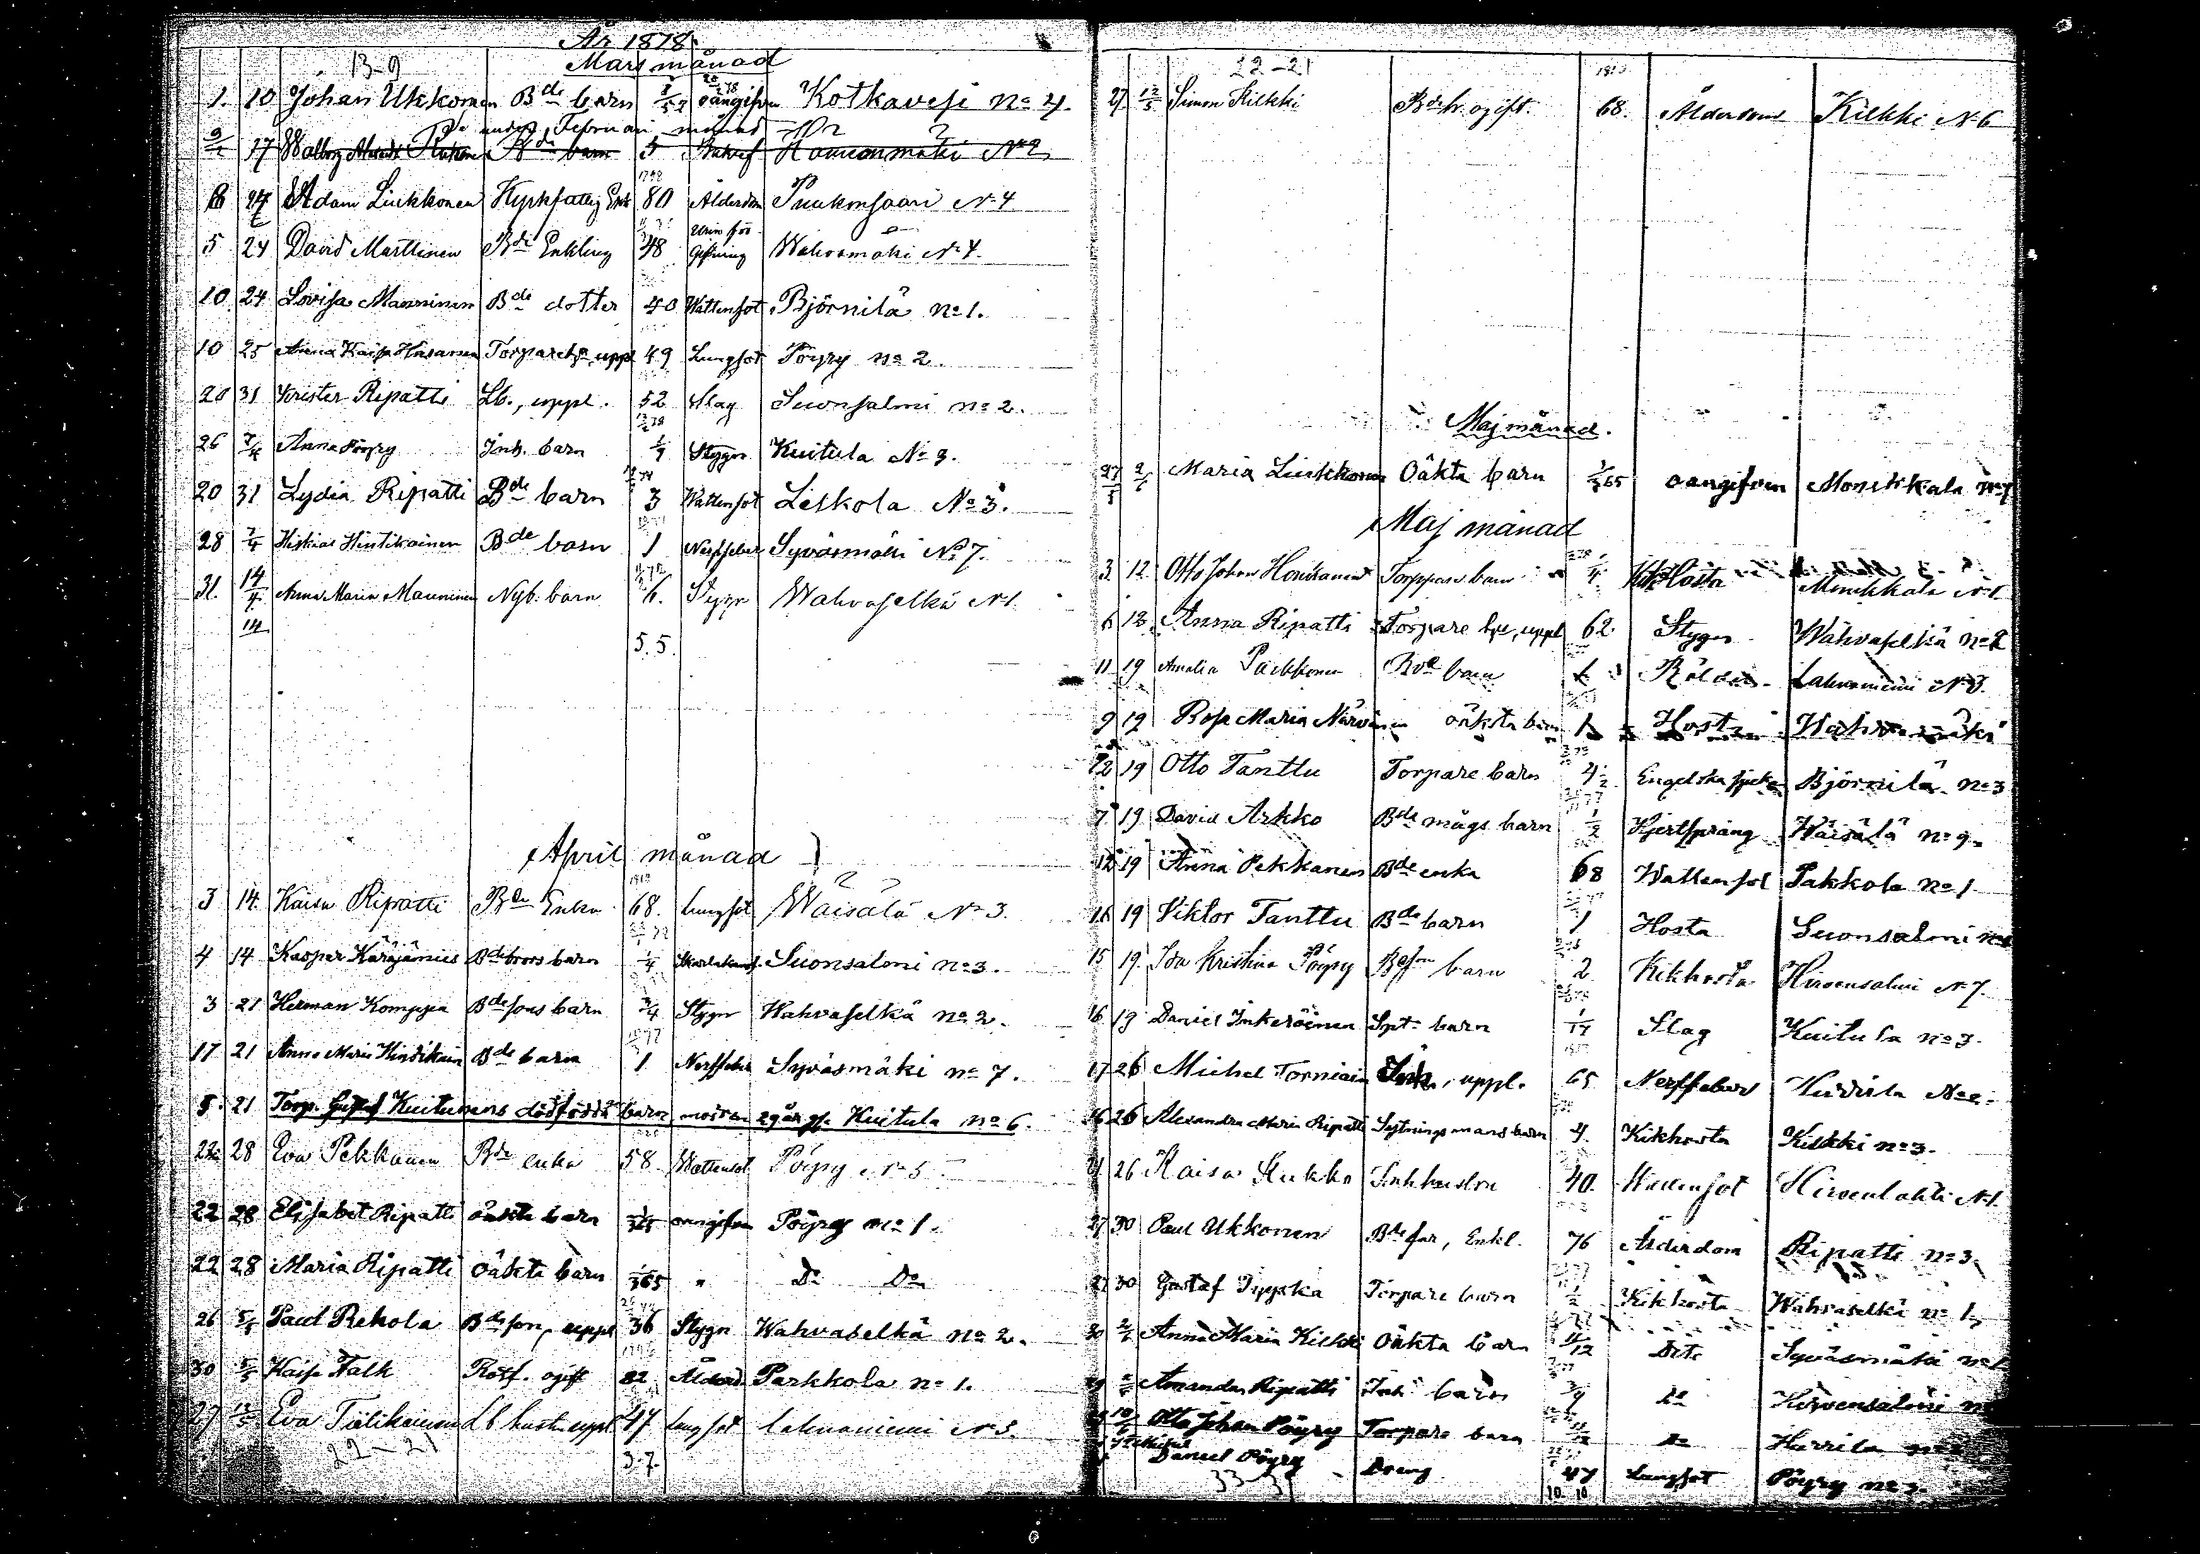 År 1878.
13-9 Mars månad
1. 10 Johan Ukkonen Bde barn oangifven Kotkavesi No 4.
under Februari månad
17 Walborg Bde barn 5
24 Adam Liukkonen Kyrkfattig Enk 80 Ålderdom Puukonsaari No 4
5 24 David Marttinen Bde Enkling 48 Urin för- giftning Wahvamäki No 4.
10 24 Lovisa Manninen Bde dotter 40 Wattensot Björnilä No 1.
10 25 Anna Kaisa 49 Lungsot Pöyry No 2.
20 31 Krister Ripatti Lb., uppl. 52 Slag Suonsalmi No 2.
26 7/4 Anna Pöyry Inh. barn Stygn Kuitula No 3.
20 31 Lydia Ripatti Bde barn 3 Wattensot Leikola No 3.
28 7/4 Hiskias Hintikainen Bde barn 1 Nerffeber Syväsmäki No 7.
31. 14/4 Anna Maria Manninen Nyb. barn 6. Stygn Wahvaselkä No 1
14
5.5.
April månad
3 14. Kaisa Ripatti Bde Enka 68. Lungsot Wäisälä No 3.
4 14 Kasper Käräjämies Bde brors barn 1/4 Suonsalmi No 3.
3 21 Herman Komppa Bde sons barn 3/4 Stygn Wahvaselkä No 2.
17 21 Anna Maria Hintikain Bde barn 1 Nerffeber Syväsmäki No 7.
5. 21 Torp. Gustaf Kuitunens dödfödda barn modren 29 år gl. Kuitula No 6.
22 28 Eva Pekkanen Bde enka 58. Wattensot Pöyry No 5
22 28 Elisabet Ripatti oäkta barn oangifven Pöyry No 1.
22 28 Maria Ripatti Oäkta barn 1/365 " Do Do
26 5/5 Paul Rekola Bde son, uppl 36 Stygn Wahvaselkä No 2.
30 5/5 Kaisa Falk Rotf. ogift 82 Ålderd Parkkola No 1.
27 12/5 Eva Lb hustru uppl 47 Lungsot Lahnaniemi No 3.
22-21
3.7.
22-21
27 12/5 Simon Kilkki ogift. 68. Ålderdom Kilkki No 6
Maj månad.
27/5 2/6 Maria Liukkonen Oäkta barn 2/365 oangifven Monikkala
Maj månad
3 12 Otto Johan Torppare barn 1/4 Kikhosta Monikkala No 1
6 12 Anna Ripatti Torpare hu, uppl 62 Stygn Wahvaselkä No 2
11 19 Amalia Bde barn Lahnaniemi No 3.
9 19 Rosa Maria oäkta barn 1 Hosta Wahvamäki
12 19 Otto Tanttu Torpare barn 4 1/2 Engelska sjuka Björnilä No 3
7 19 David Arkko Bde mågs barn 1/2 Hjertsprång Wäisälä No 9.
12 19 Anna Pekkanen Bde enka 68 Wattensot Pakkola No 1.
16 19 Viktor Tanttu Bde barn 1 Hosta Suonsalmi
15 19 Ida Kristina Pöyry barn 2 Kikhosta Hirvensalmi No 7.
16 19 Daniel Inkeröinen barn 1/14 Slag Kuitula No 3.
17 26 Michel Torniain uppl. 65 Nerffeber No 2.
16 26 Alexandra Maria Ripatti Sytningsmans barn 4. Kikhosta Kilkki No 3.
26 Kaisa Kukko Inh hustru 40. Wattensot Hirvenlahti No 1.
27 30 Paul Ukkonen Bde far, Enkl. 76 Ålderdom Ripatti No 3.
27 30 Gustaf Torpare barn 1/2 Kikhosta Wahvaselkä No 1.
30 2/6 Anna Maria Kilkki Oäkta barn Dito Syväsmäki
Amanda Ripatti Inh barn 3/4 Do Hirvensalmi
Otto Johan Pöyry Torpare barn Do Hurrila
Daniel Pöyry Dreng 47 Lungsot Pöyry
10. 10